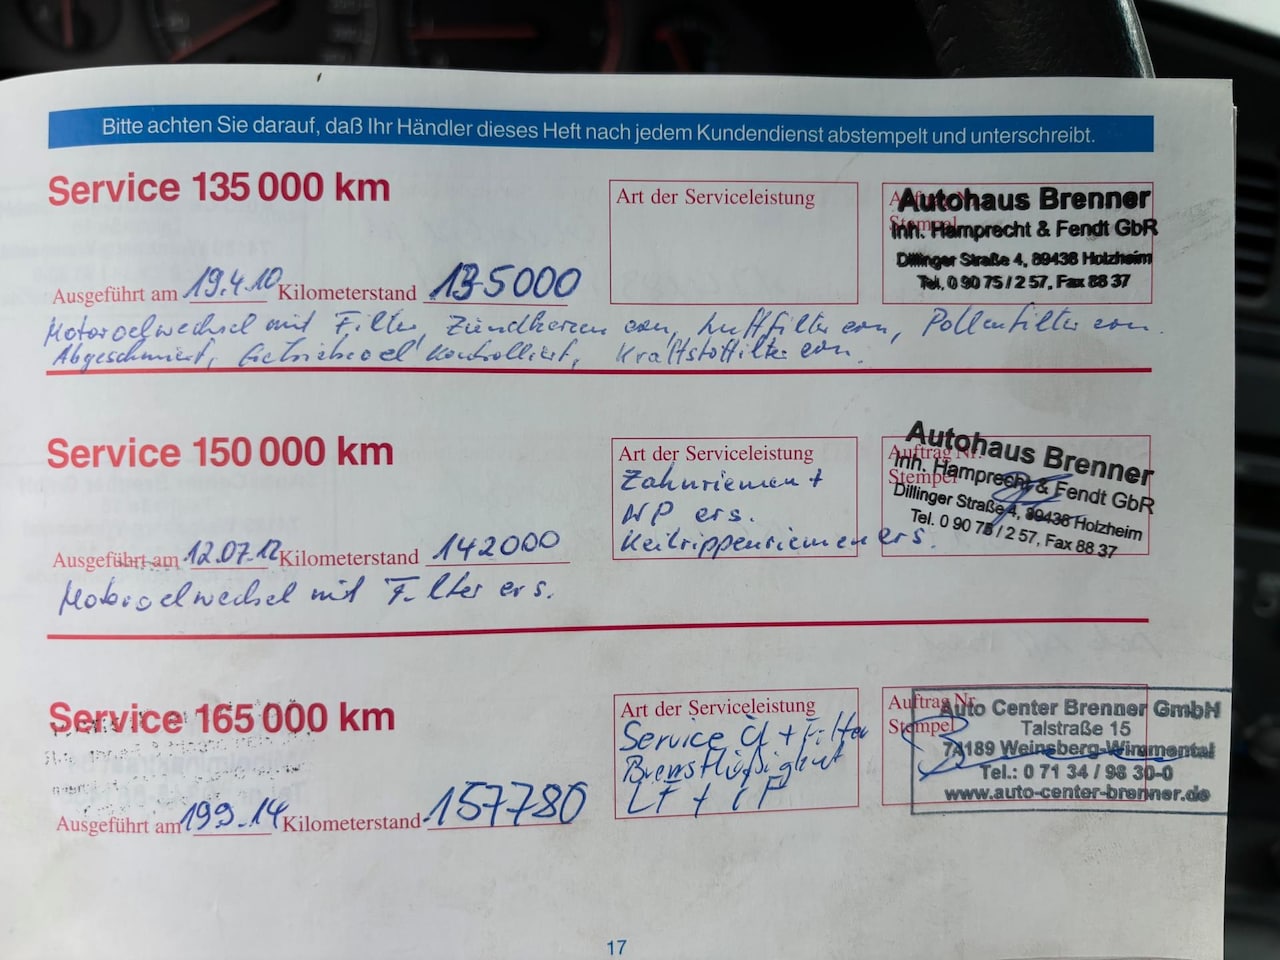 Bitte achten Sie darauf, daß Ihr Händler dieses Heft nach jedem Kundendienst abstempelt und unterschreibt.
Service 135 000 km
Art der Serviceleistung
Stempel
Autohaus Brenner
Inh. Hamprecht & Fendt GbR
Dillinger Straße 4, 89438 Holzheim
Tel. 0 90 75 / 2 57, Fax 88 37
Ausgeführt am 19.4.10 Kilometerstand 135000
Motoroelwechsel mit Filter, Zündkerzen ern, Luftfilter ern, Pollenfilter ern.
Abgeschmiert, Getriebeoel kontrolliert, Kraftstoffilter ern.
Service 150 000 km
Art der Serviceleistung
Zahnriemen +
WP ers.
Keilrippenriemen ers.
Auftrag Nr.
Stempel
Autohaus Brenner
Inh. Hamprecht & Fendt GbR
Dillinger Straße 4, 89438 Holzheim
Tel. 0 90 75 / 2 57, Fax 88 37
Ausgeführt am 12.07.12 Kilometerstand 142000
Motoroelwechsel mit Filter ers.
Service 165 000 km
Art der Serviceleistung
Service Öl + Filter
Bremsflüßigkeit
LF + IF
Auftrag Nr.
Stempel
Auto Center Brenner GmbH
Talstraße 15
74189 Weinsberg-Wimmental
Tel.: 0 71 34 / 98 30-0
www.auto-center-brenner.de
Ausgeführt am 199.14 Kilometerstand 157780
17